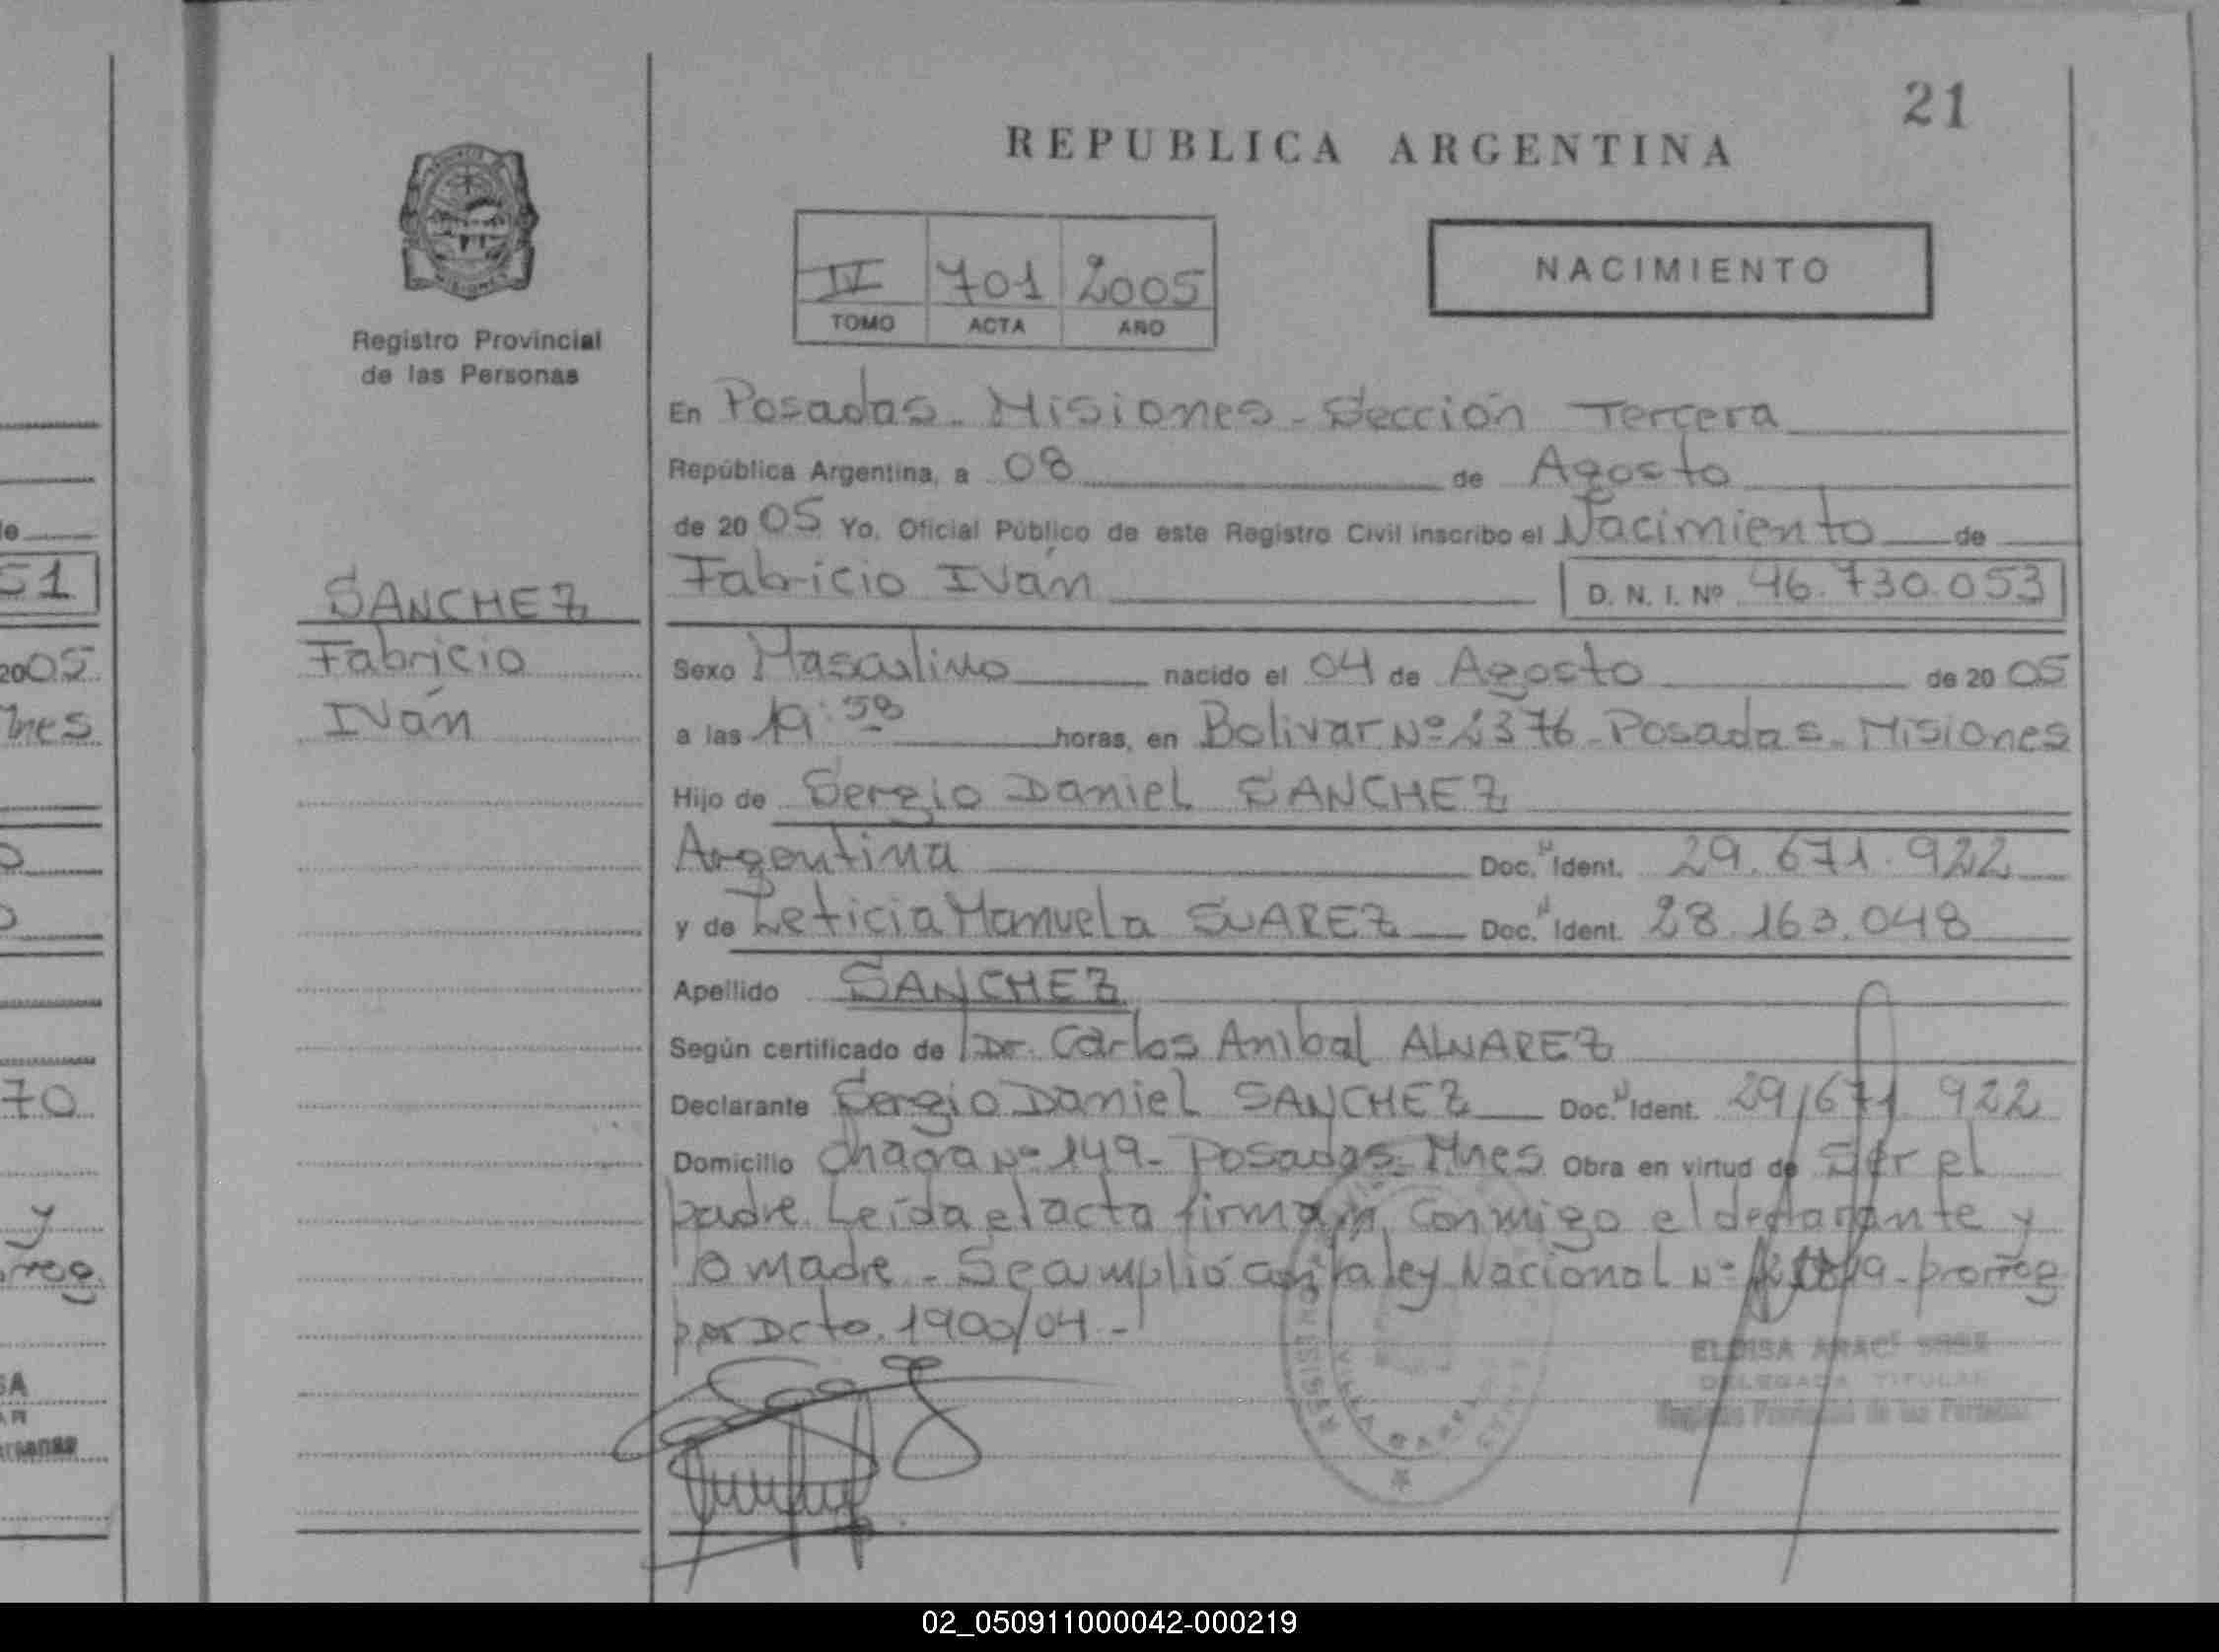 21
REPUBLICA ARGENTINA
Registro Provincial
de las Personas
IV 701 2005
TOMO ACTA AÑO
NACIMIENTO
En Posadas - Misiones - Sección Tercera
República Argentina, a 08 de Agosto
de 2005 Yo, Oficial Público de este Registro Civil inscribo el Nacimiento de
Fabricio Iván D. N. I. Nº 46.730.053
SANCHEZ
Fabricio
Iván
Sexo Masculino nacido el 04 de Agosto de 2005
a las 19:58 horas, en Bolivar Nº 2376 - Posadas - Misiones
Hijo de Sergio Daniel SANCHEZ
Argentina Doc. N Ident. 29.671.922
y de Leticia Manuela SUAREZ Doc. N Ident. 28.163.048
Apellido SANCHEZ
Según certificado de Dr. Carlos Anibal ALVAREZ
Declarante Sergio Daniel SANCHEZ Doc. N Ident. 29.671.922
Domicilio Chacra Nº 149 - Posadas - Mnes Obra en virtud de Ser el
padre. Leída el acta firman conmigo el declarante y
la madre - Se cumplió con la ley Nacional Nº prorrog
por Dcto. 1900/04 -
ELOISA
DELEGADA TITULAR
Registro Provincial de las Personas
51
2005
Mnes
70
y
rreg
02_050911000042-000219